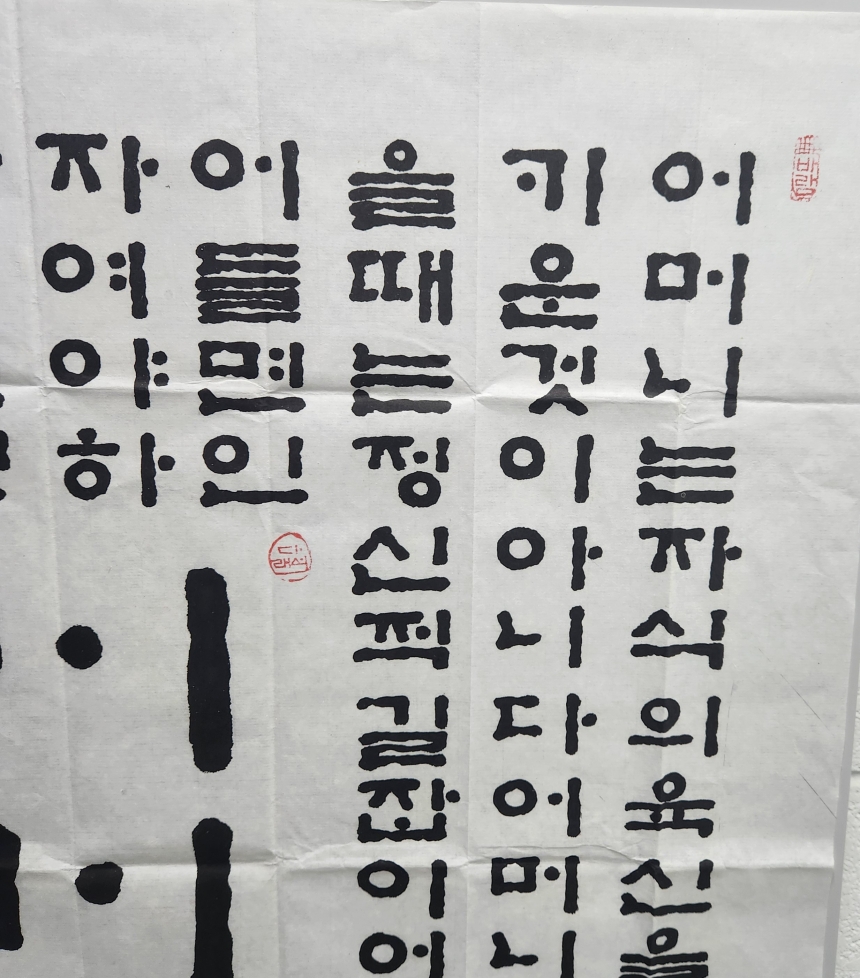 어머니는자식의육신을
키운것이아니다어머니
을때는정신적길잡이어
어를면인
자여야하